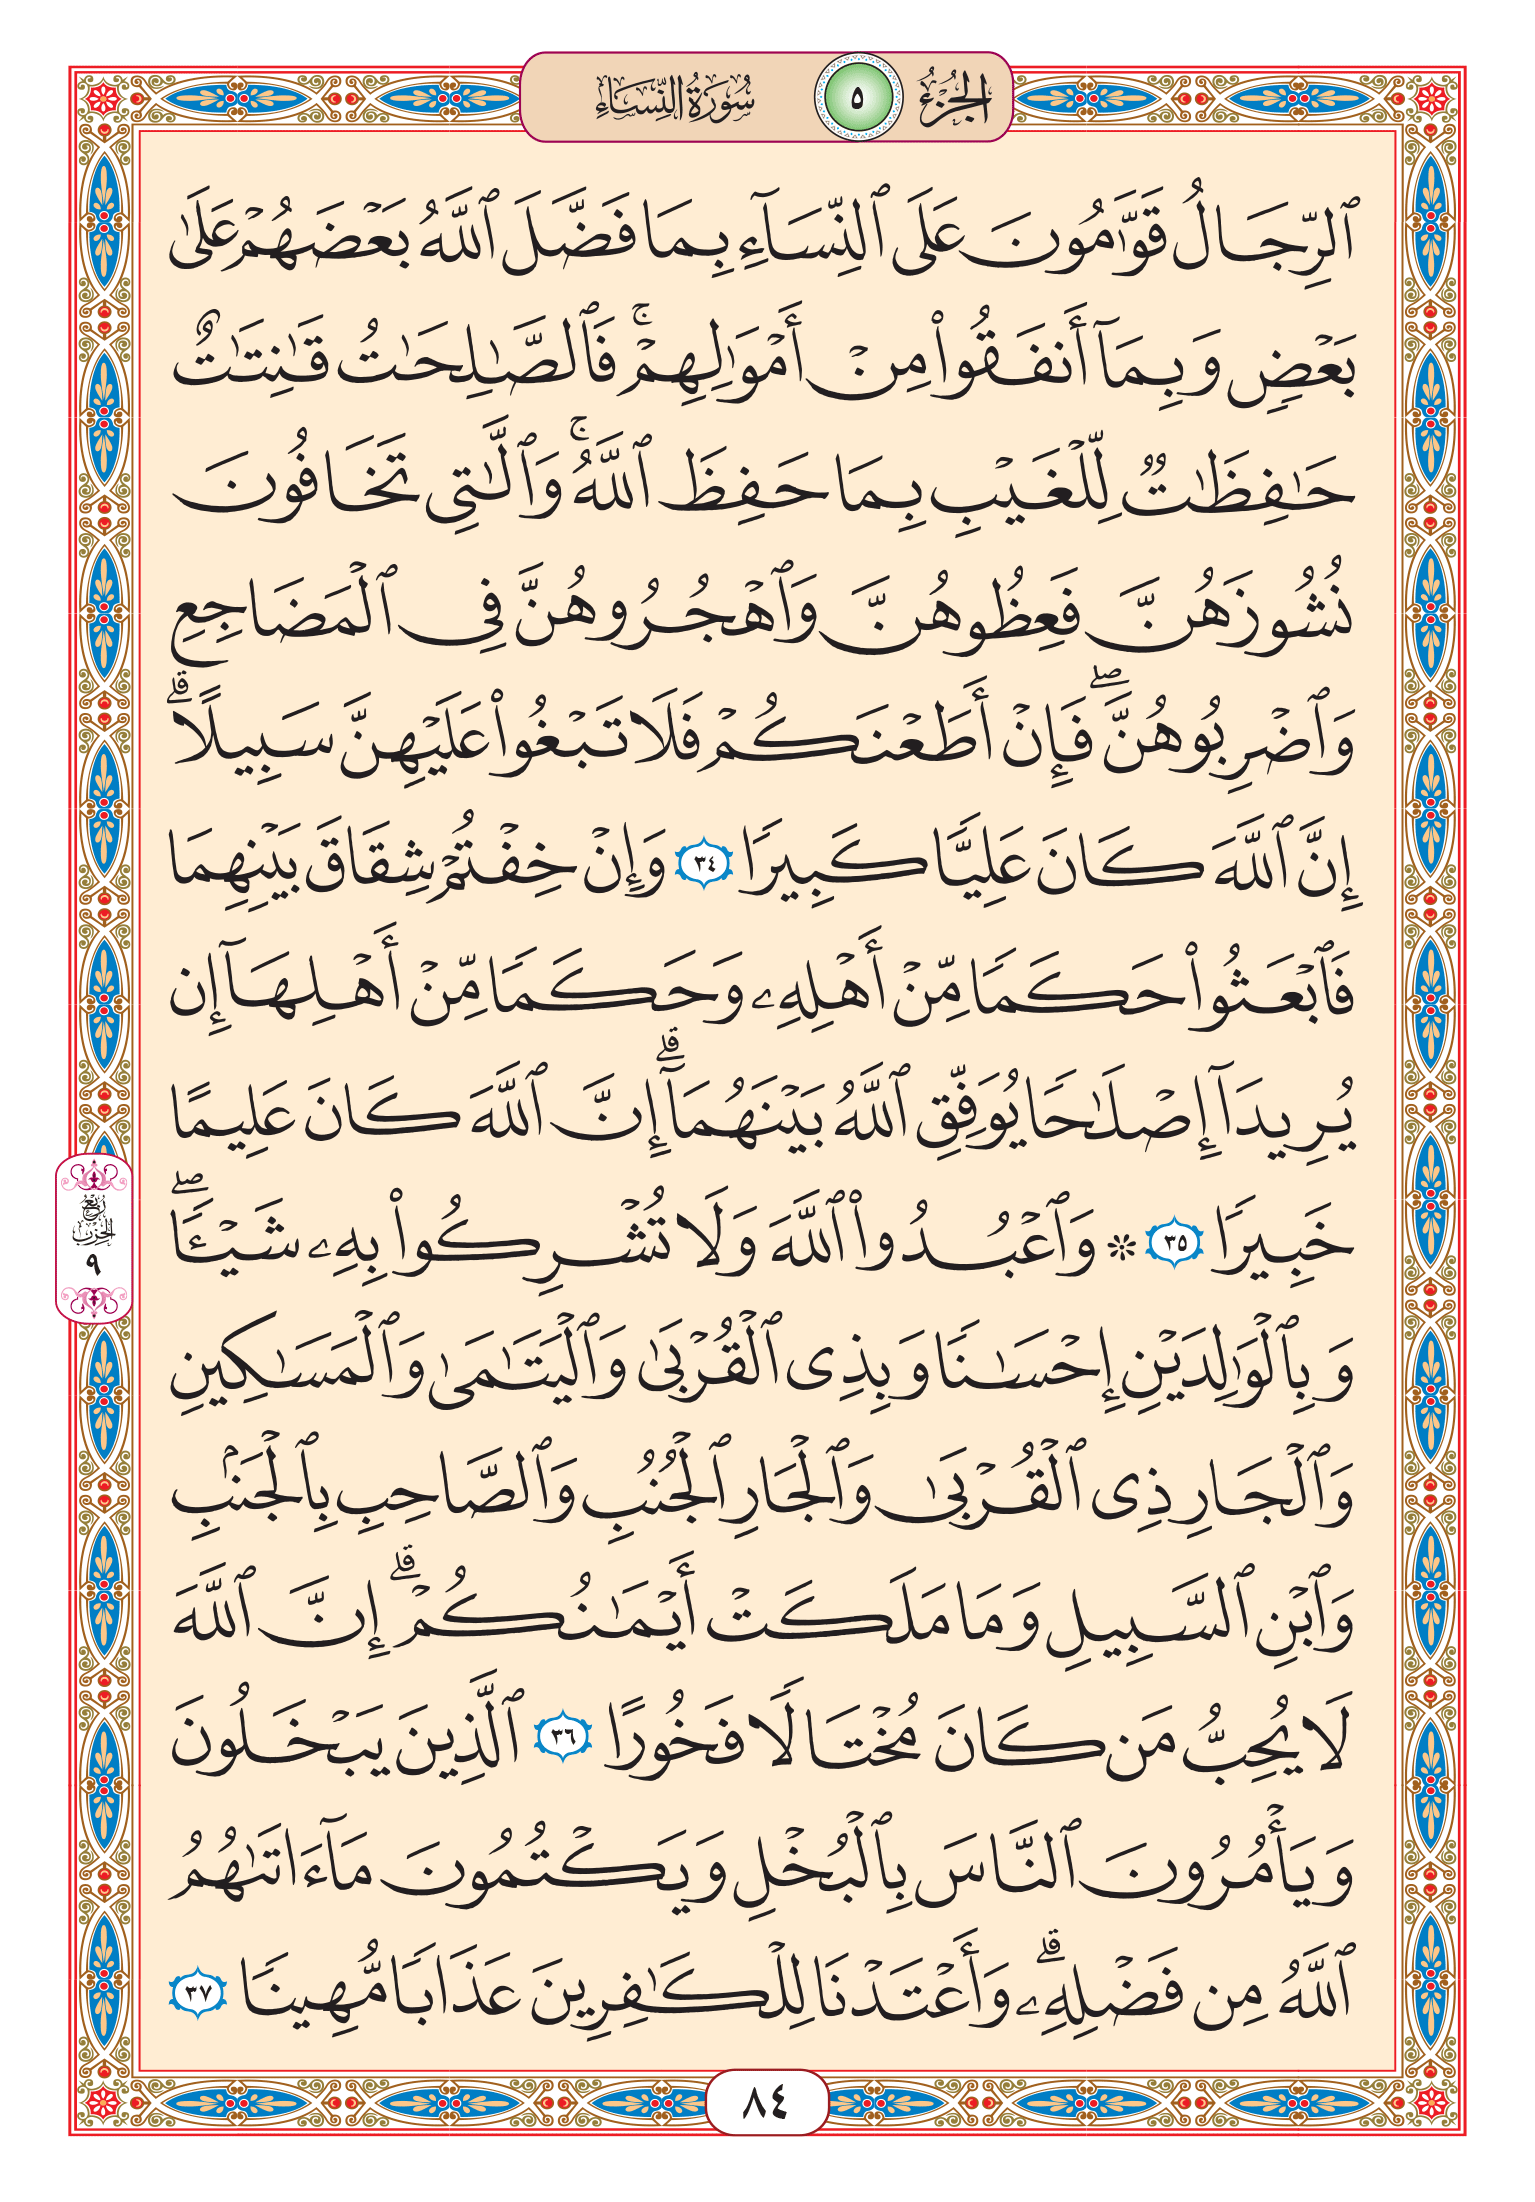 الجزء ٥ سورة النساء
ٱلرِّجَالُ قَوَّٰمُونَ عَلَى ٱلنِّسَآءِ بِمَا فَضَّلَ ٱللَّهُ بَعْضَهُمْ عَلَىٰ
بَعْضٍ وَبِمَآ أَنفَقُوا۟ مِنْ أَمْوَٰلِهِمْ ۚ فَٱلصَّٰلِحَٰتُ قَٰنِتَٰتٌ
حَٰفِظَٰتٌ لِّلْغَيْبِ بِمَا حَفِظَ ٱللَّهُ ۚ وَٱلَّٰتِى تَخَافُونَ
نُشُوزَهُنَّ فَعِظُوهُنَّ وَٱهْجُرُوهُنَّ فِى ٱلْمَضَاجِعِ
وَٱضْرِبُوهُنَّ ۖ فَإِنْ أَطَعْنَكُمْ فَلَا تَبْغُوا۟ عَلَيْهِنَّ سَبِيلًا ۗ
إِنَّ ٱللَّهَ كَانَ عَلِيًّا كَبِيرًا ٣٤ وَإِنْ خِفْتُمْ شِقَاقَ بَيْنِهِمَا
فَٱبْعَثُوا۟ حَكَمًا مِّنْ أَهْلِهِۦ وَحَكَمًا مِّنْ أَهْلِهَآ إِن
يُرِيدَآ إِصْلَٰحًا يُوَفِّقِ ٱللَّهُ بَيْنَهُمَآ ۗ إِنَّ ٱللَّهَ كَانَ عَلِيمًا
خَبِيرًا ٣٥ ۞ وَٱعْبُدُوا۟ ٱللَّهَ وَلَا تُشْرِكُوا۟ بِهِۦ شَيْـًٔا ۖ
ربع الحزب ٩
وَبِٱلْوَٰلِدَيْنِ إِحْسَٰنًا وَبِذِى ٱلْقُرْبَىٰ وَٱلْيَتَٰمَىٰ وَٱلْمَسَٰكِينِ
وَٱلْجَارِ ذِى ٱلْقُرْبَىٰ وَٱلْجَارِ ٱلْجُنُبِ وَٱلصَّاحِبِ بِٱلْجَنۢبِ
وَٱبْنِ ٱلسَّبِيلِ وَمَا مَلَكَتْ أَيْمَٰنُكُمْ ۗ إِنَّ ٱللَّهَ
لَا يُحِبُّ مَن كَانَ مُخْتَالًا فَخُورًا ٣٦ ٱلَّذِينَ يَبْخَلُونَ
وَيَأْمُرُونَ ٱلنَّاسَ بِٱلْبُخْلِ وَيَكْتُمُونَ مَآ ءَاتَىٰهُمُ
ٱللَّهُ مِن فَضْلِهِۦ ۗ وَأَعْتَدْنَا لِلْكَٰفِرِينَ عَذَابًا مُّهِينًا ٣٧
٨٤